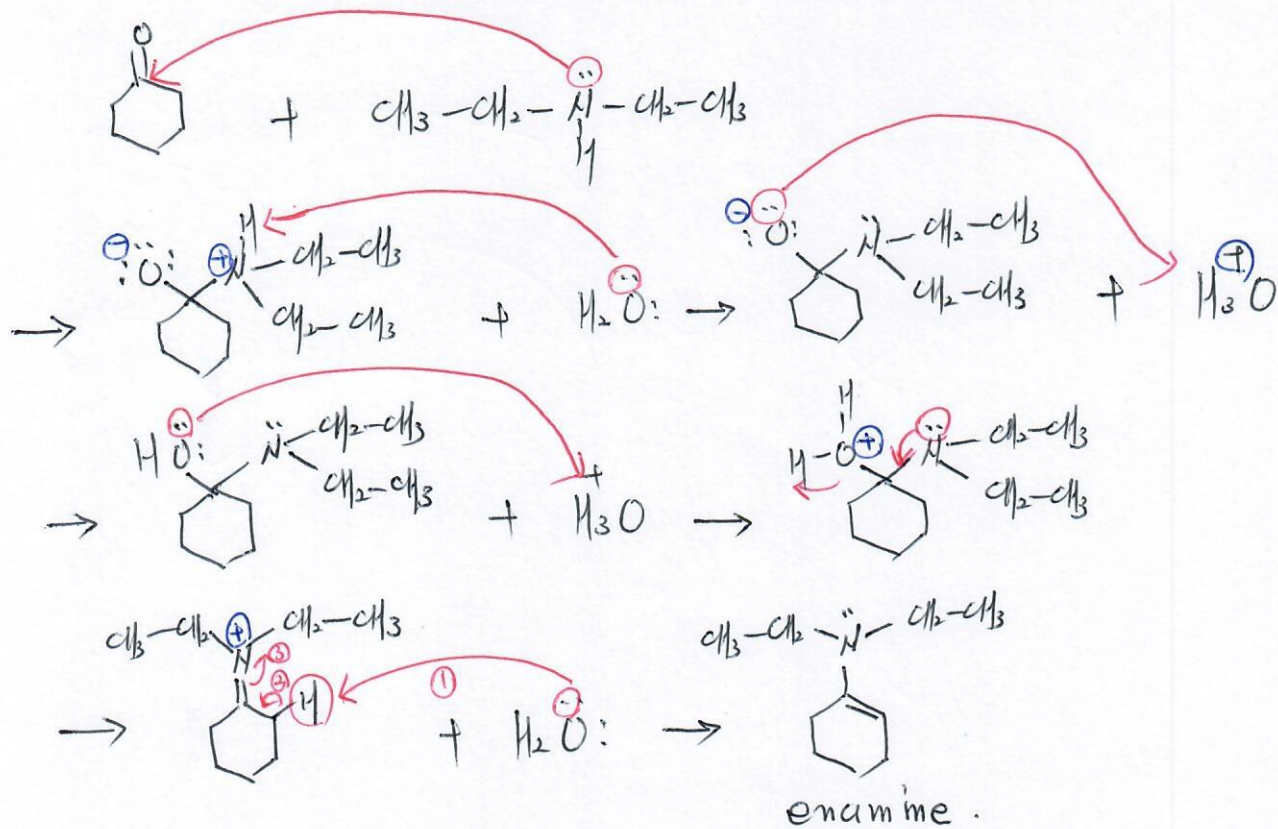 O
+ CH3-CH2-N-CH2-CH3
H
⊖ :O: ⊕ N H CH2-CH3 CH2-CH3 + H2O: → ⊖ :O: N CH2-CH3 CH2-CH3 + H3O ⊕
→ HO: N CH2-CH3 CH2-CH3 + H3O + → H H-O ⊕ N CH2-CH3 CH2-CH3
→ CH3-CH2 ⊕ N CH2-CH3 ③ ② H ① + H2O: → CH3-CH2-N CH2-CH3
enamine.